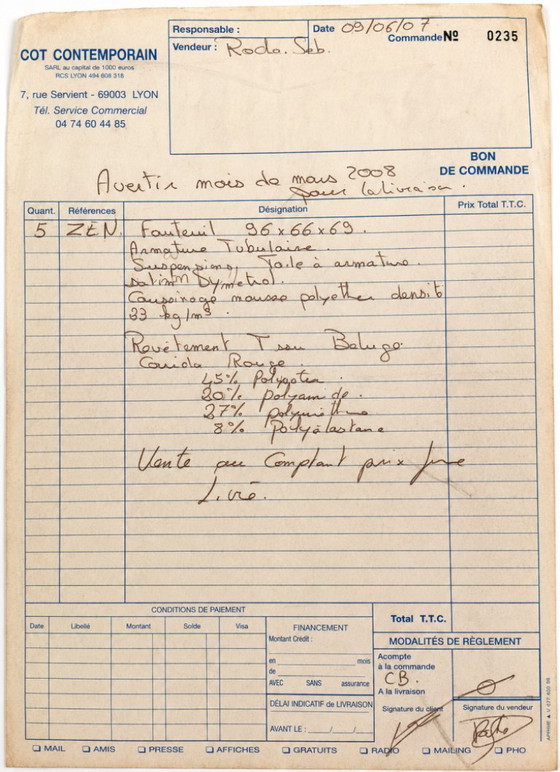 COT CONTEMPORAIN
SARL au capital de 1000 euros
RCS LYON 494 608 316
7, rue Servient - 69003 LYON
Tél. Service Commercial
04 74 60 44 85
Responsable :
Vendeur : Roda. Seb.
Date 09/06/07
Commande No 0235
BON
DE COMMANDE
Avertir mois de mars 2008
pour la livraison.
Quant. Références Désignation Prix Total T.T.C.
5 ZEN. Fauteuil 96x66x69.
Armature Tubulaire.
Suspensions, Toile à armature.
satin Dymetrol.
Coussinage mousse polyether densité
33 kg/m³.
Revètement Tissu Beluga
Rouge
45% 
20% polyamide.
27%
8% Polyélastane
Vente au Comptant prix
Livré.
CONDITIONS DE PAIEMENT
Date Libellé Montant Solde Visa
FINANCEMENT
Montant Crédit :
en mois
de
AVEC SANS assurance
DÉLAI INDICATIF de LIVRAISON
AVANT LE : / /
Total T.T.C.
MODALITÉS DE RÈGLEMENT
Acompte
à la commande
CB.
A la livraison
Signature du client
Signature du vendeur
MAIL AMIS PRESSE AFFICHES GRATUITS RADIO MAILING PHO